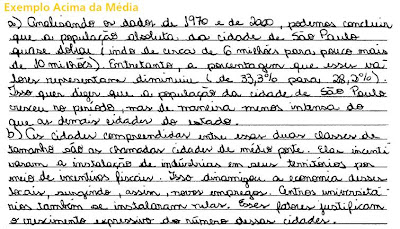 Exemplo Acima da Média
a) Analisando os dados de 1970 e de 2000, podemos concluir
que a população absoluta da cidade de São Paulo
quase dobrou (indo de cerca de 6 milhões para pouco mais
de 10 milhões). Entretanto, a porcentagem que esses va-
lores representam diminuiu (de 33,3% para 28,2%).
Isso quer dizer que a população da cidade de São Paulo
cresceu no período, mas de maneira menos intensa do
que as demais cidades do estado.
b) As cidades compreendidas entre essas duas classes de
tamanho são as chamadas cidades de médio porte. Elas incenti-
varam a instalação de indústrias em seus territórios por
meio de incentivos fiscais. Isso dinamizou a economia desses
locais, surgindo, assim, novos empregos. Centros universitá-
rios também se instalaram nelas. Esses fatores justificam
o crescimento expressivo do número dessas cidades.